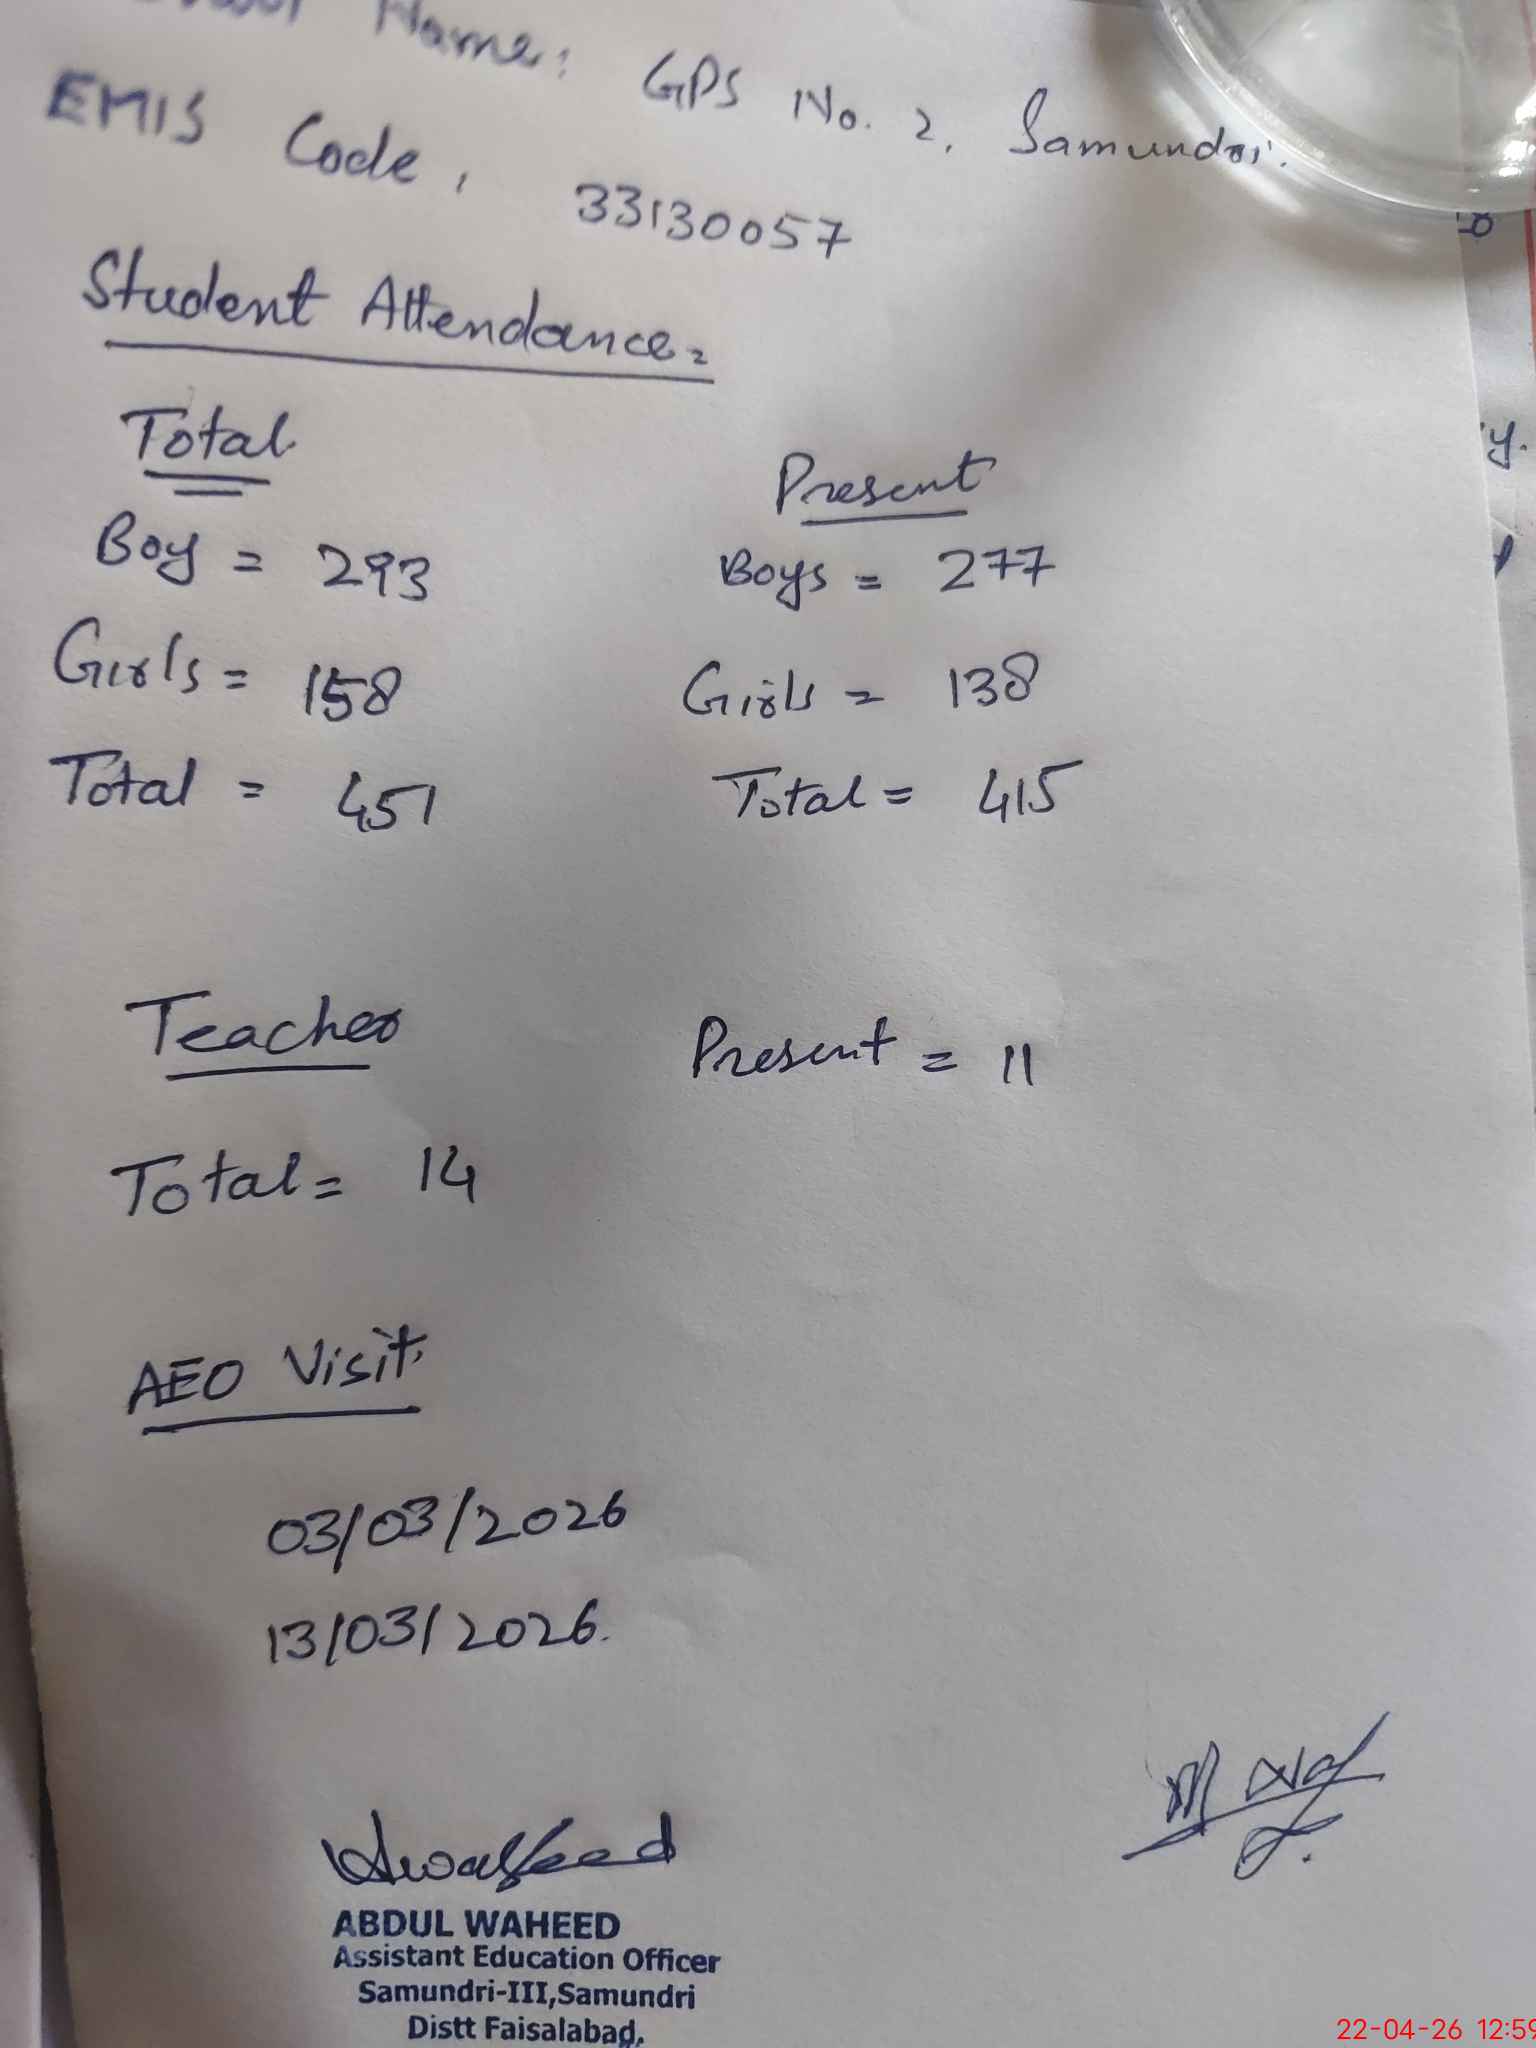 Name: GPS No. 2, Samundri.
EMIS Code, 33130057
Student Attendance.
Total Present
Boy = 293 Boys = 277
Girls = 158 Girls = 138
Total = 451 Total = 415
Teacher Present = 11
Total = 14
AEO Visit.
03/03/2026
13/03/2026.
ABDUL WAHEED
Assistant Education Officer
Samundri-III,Samundri
Distt Faisalabad.
22-04-26 12:59